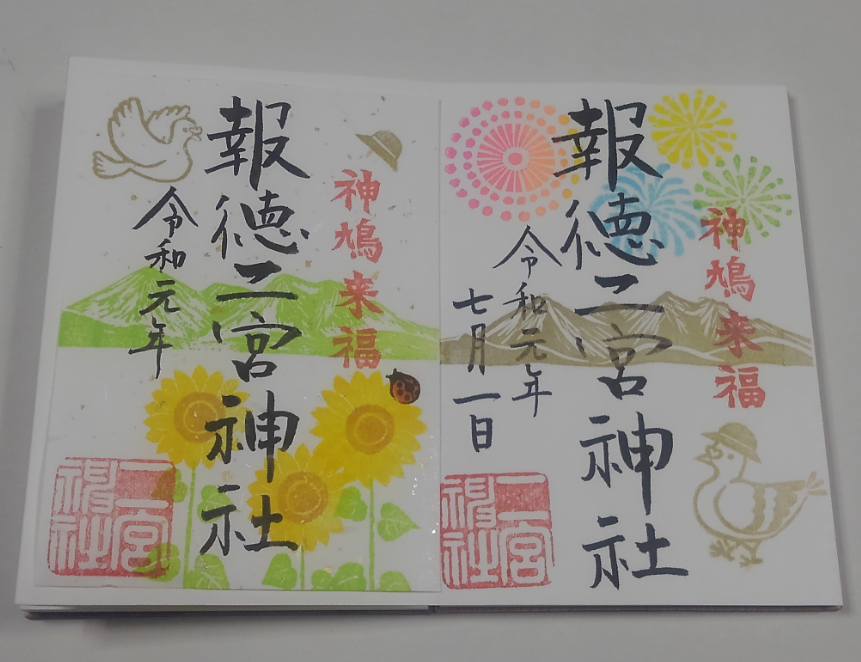 神鳩来福
報徳二宮神社
令和元年
二宮神社
神鳩来福
報徳二宮神社
令和元年
七月一日
二宮神社